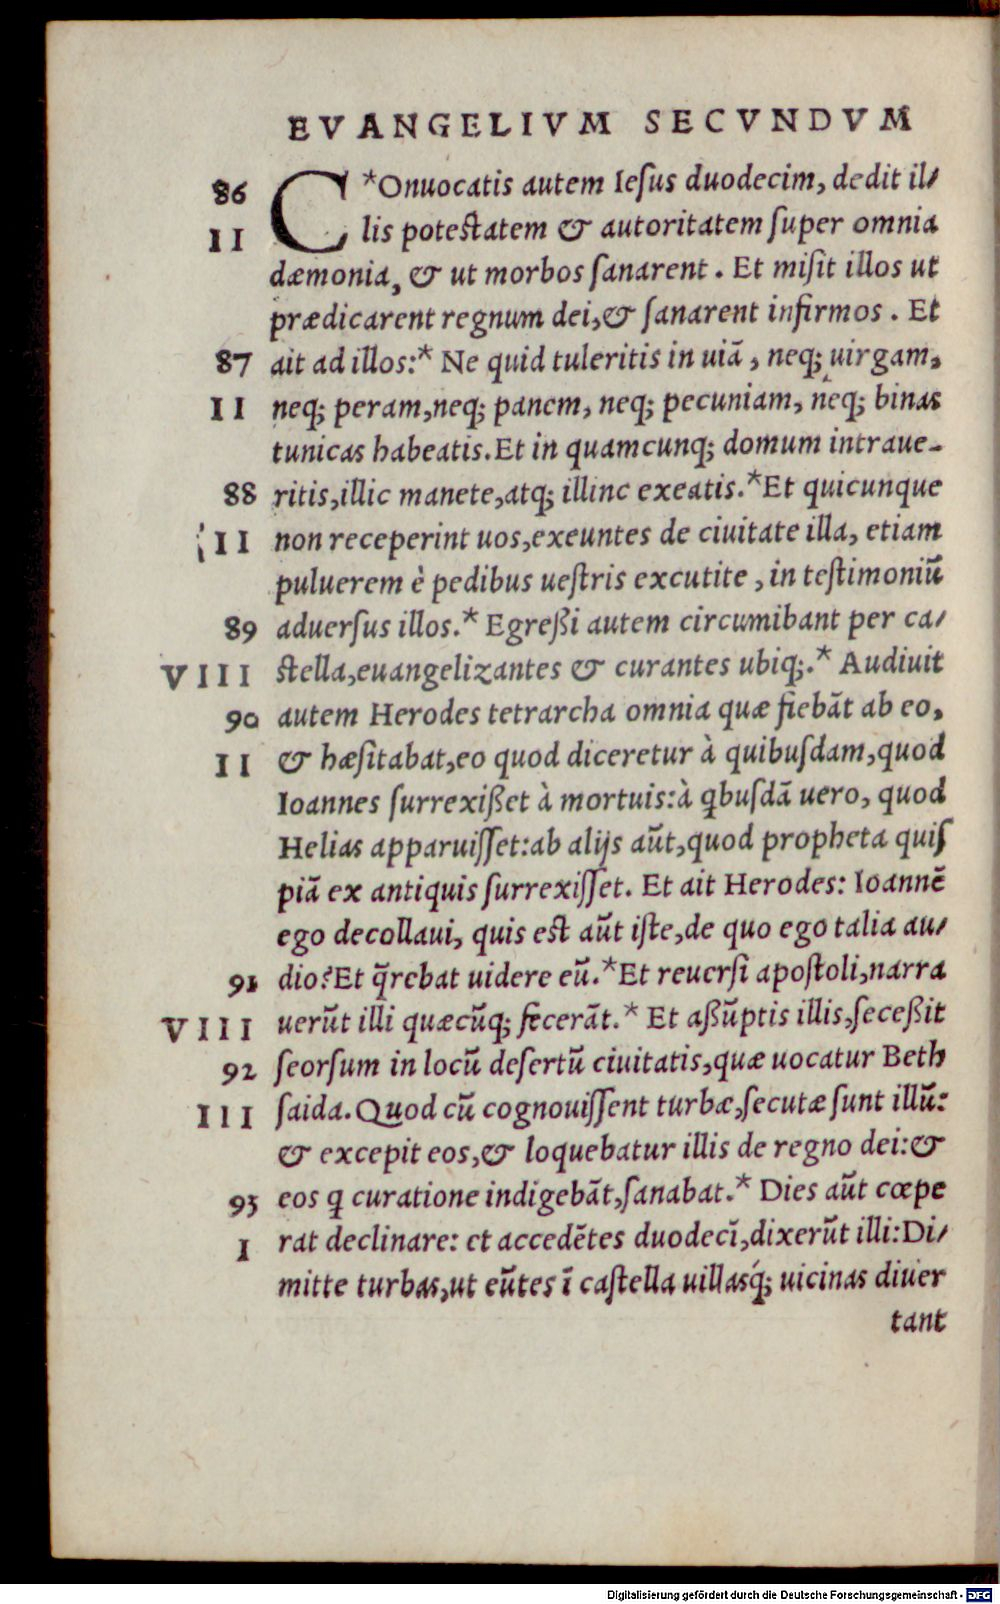 EVANGELIVM SECVNDVM
86 C*Onuocatis autem Iesus duodecim, dedit il/
II lis potestatem & autoritatem super omnia
dæmonia, & ut morbos sanarent. Et misit illos ut
prædicarent regnum dei,& sanarent infirmos. Et
87 ait ad illos:* Ne quid tuleritis in uiā, neq; uirgam,
II neq; peram,neq; panem, neq; pecuniam, neq; binas
tunicas habeatis.Et in quamcunq; domum intraue-
88 ritis,illic manete,atq; illinc exeatis.*Et quicunque
II non receperint uos,exeuntes de ciuitate illa, etiam
puluerem è pedibus uestris excutite, in testimoniū
89 aduersus illos.* Egreßi autem circumibant per ca/
VIII stella,euangelizantes & curantes ubiq;.* Audiuit
90 autem Herodes tetrarcha omnia quæ fiebāt ab eo,
II & hæsitabat,eo quod diceretur à quibusdam,quod
Ioannes surrexißet à mortuis:à qbusdā uero, quod
Helias apparuisset:ab alijs aūt,quod propheta quis
piā ex antiquis surrexisset. Et ait Herodes: Ioannē
ego decollaui, quis est aūt iste,de quo ego talia au/
91 dio?Et q̄rebat uidere eū.*Et reuersi apostoli,narra
VIII uerūt illi quæcūq; fecerāt.* Et aßūptis illis,seceßit
92 seorsum in locū desertū ciuitatis,quæ uocatur Beth
III saida.Quod cū cognouissent turbæ,secutæ sunt illū:
& excepit eos,& loquebatur illis de regno dei:&
93 eos q curatione indigebāt,sanabat.* Dies aūt cœpe
I rat declinare: et accedētes duodecī,dixerūt illi:Di/
mitte turbas,ut eūtes ī castella uillasq́; uicinas diuer
tant
Digitalisierung gefördert durch die Deutsche Forschungsgemeinschaft - DFG